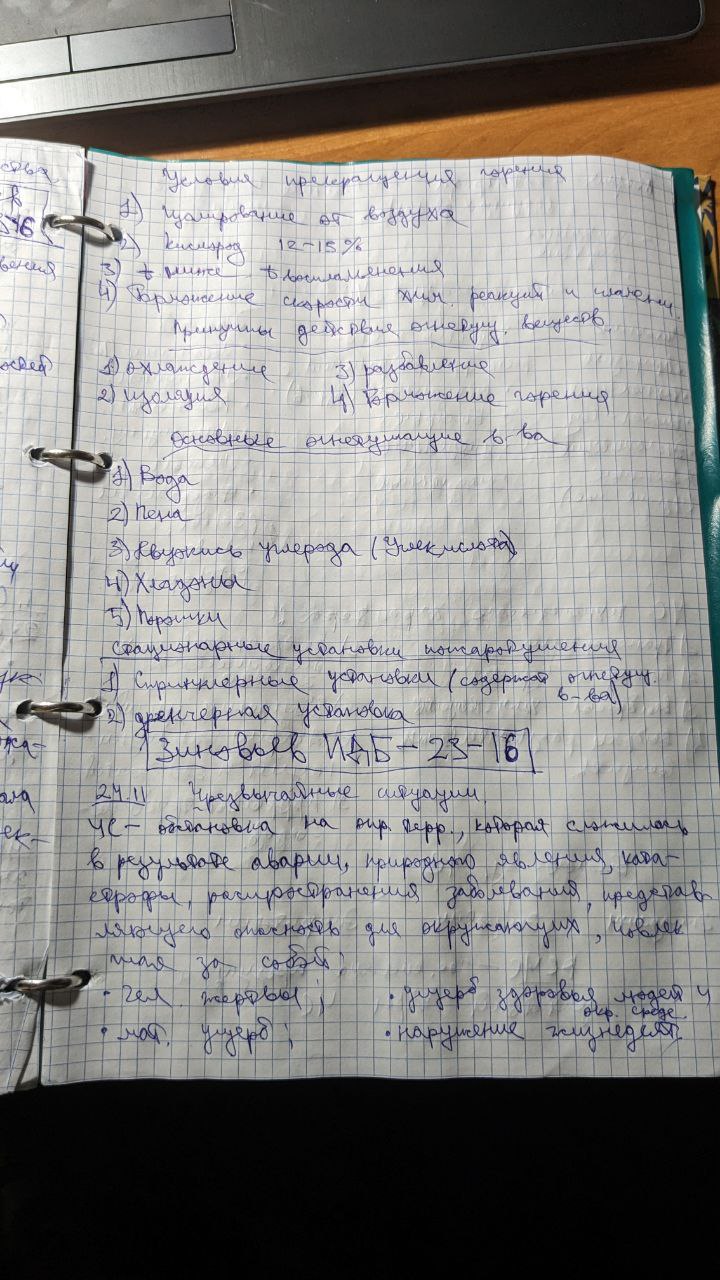 Условия прекращения горения
1) Изолирование от воздуха
2) Кислород 12-15%
3) t ниже t воспламенения
4) Торможение скорости хим. реакций и пламени
Принципы действия огнетущ. веществ.
1) охлаждение 3) разбавление
2) изоляция 4) Торможение горения
Основные огнетушащие в-ва
1) Вода
2) Пена
3) Двуокись углерода (Углекислота)
4) Хладоны
5) Порошки
Стационарные установки пожаротушения
1) Спринклерные установки (содержат огнетущ.
в-ва)
2) дренчерная установка
Зиновьев ИДБ-23-16
24.11 Чрезвычайные ситуации.
ЧС - обстановка на опр. терр., которая сложилась
в результате аварии, природного явления, ката-
строфы, распространения заболевания, представ
ляющего опасность для окружающих, повлек
шая за собой:
• чел. жертвы; • ущерб здоровья людей и
окр. среде
• мат. ущерб; • нарушение жизнедеят.